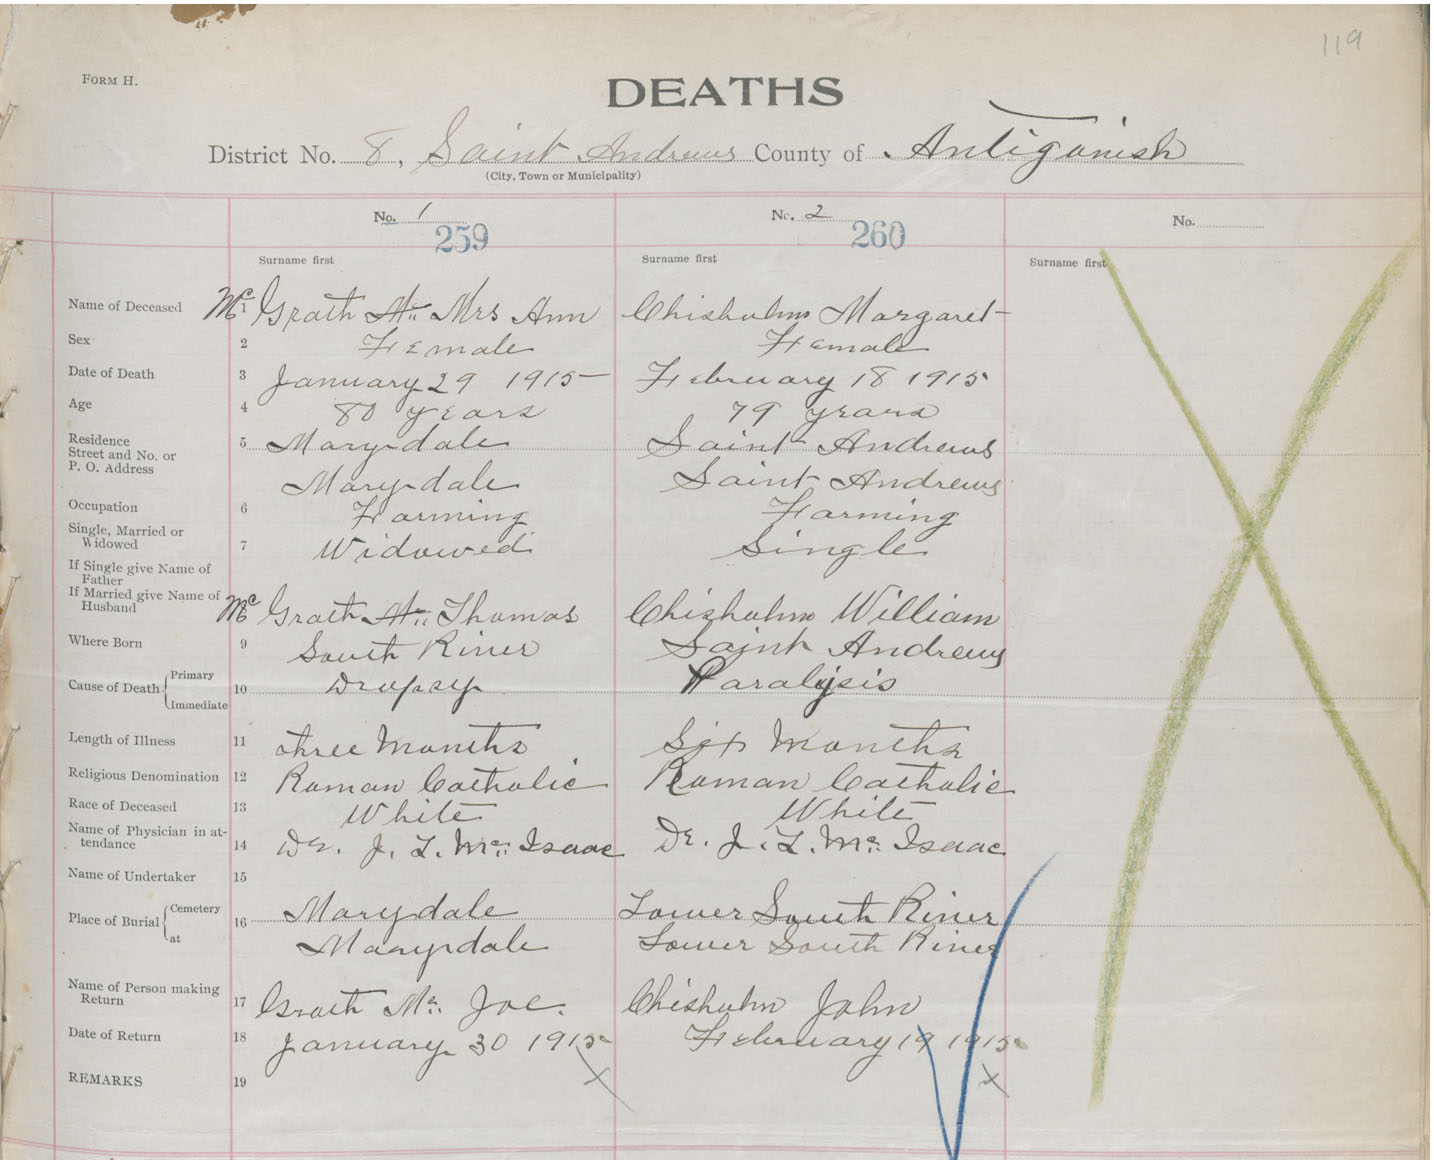 119
FORM H.
DEATHS
District No. 8, Saint Andrews County of Antigonish
(City, Town or Municipality)
No. 1 No. 2 No.
259 260
Surname first Surname first Surname first
Name of Deceased 1 Mc Grath Mc Mrs Ann Chisholm Margaret
Sex 2 Female Female
Date of Death 3 January 29 1915 February 18 1915
Age 4 80 years 79 years
Residence 5 Marydale Saint Andrews
Street and No. or
P. O. Address Marydale Saint Andrews
Occupation 6 Farming Farming
Single, Married or
Widowed 7 Widowed Single
If Single give Name of
Father
If Married give Name of
Husband 8 Mc Grath Mc Thomas Chisholm William
Where Born 9 South River Saint Andrews
Cause of Death { Primary 10 Dropsy Paralysis
Immediate
Length of Illness 11 three Months Six Months
Religious Denomination 12 Roman Catholic Roman Catholic
Race of Deceased 13 White White
Name of Physician in at-
tendance 14 Dr. J. L. Mc Isaac Dr. J. L. Mc Isaac
Name of Undertaker 15
Place of Burial { Cemetery 16 Marydale Lower South River
at Marydale Lower South River
Name of Person making
Return 17 Grath Mc Joe. Chisholm John
Date of Return 18 January 30 1915 February 19 1915
REMARKS 19 x x